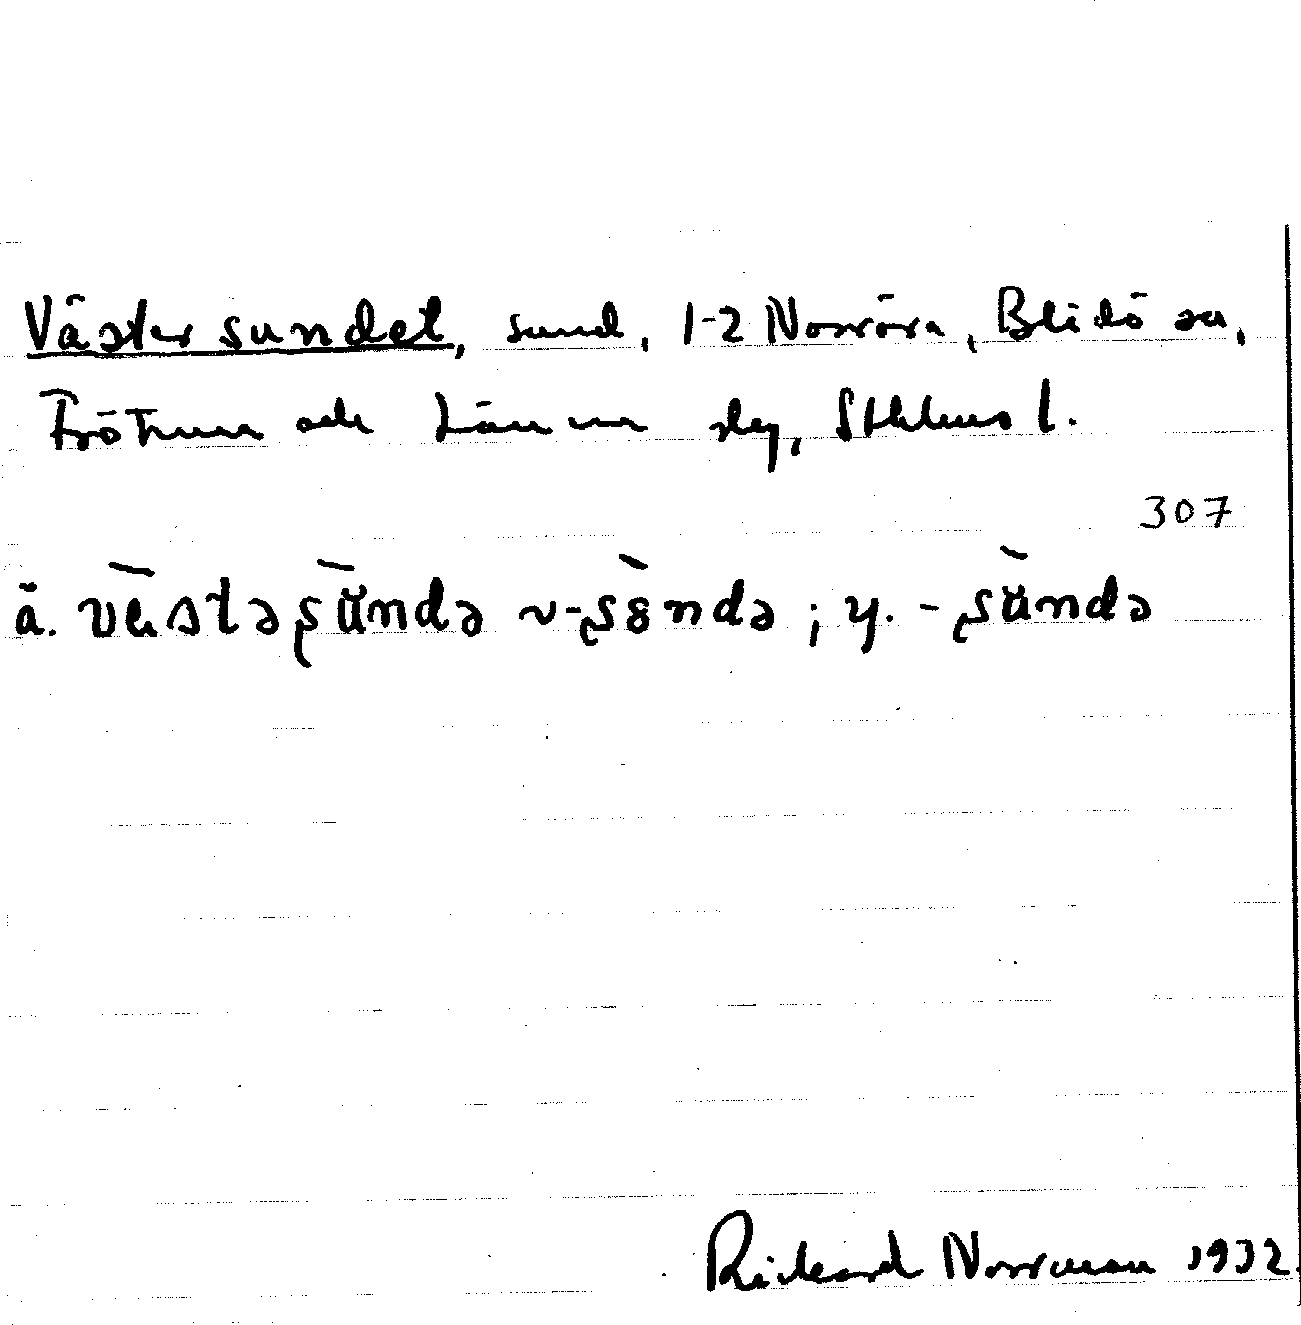 Västersundet, sund, 1-2 Norröra, Blidö sn,
Frötuna och Länna slg, Sthlms l.
307
ä. västəʂùndə ~-ʂȣ̀ndə; y. -ʂùndə
Rickard Norrman 1932.